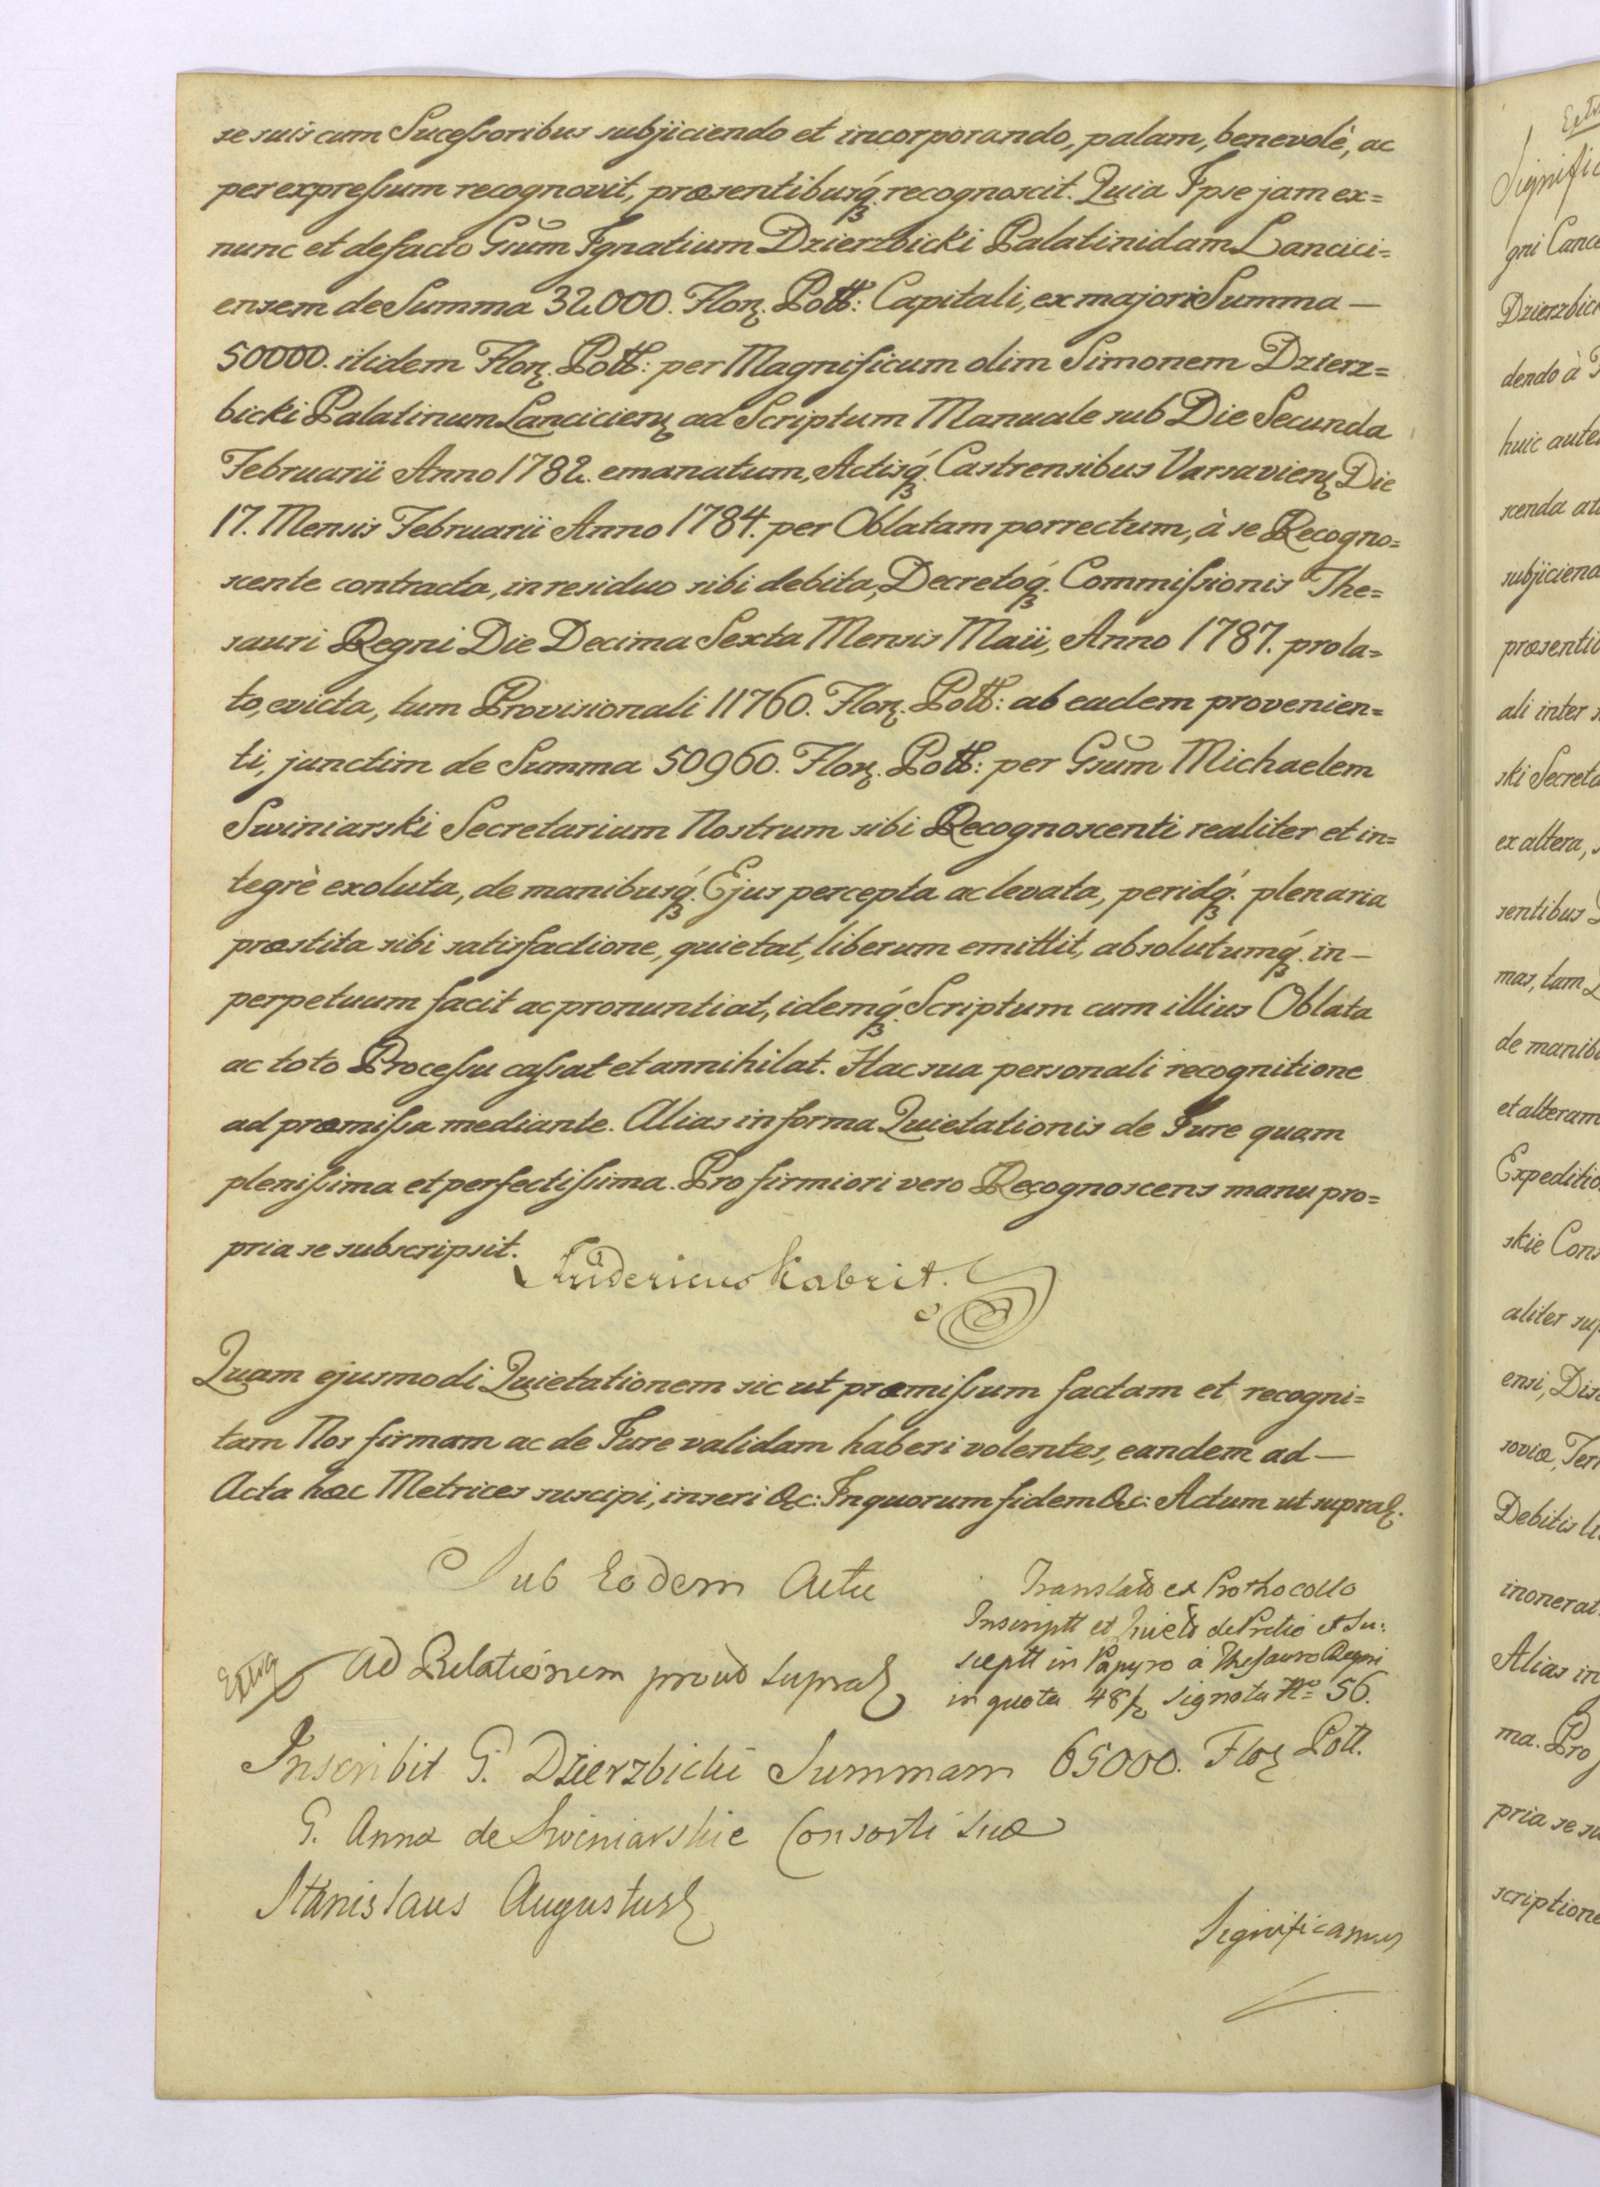 se suis cum Sucessoribus subjiciendo et incorporando, palam, benevolè, ac
per expressum recognovit, præsentibusq́. recognoscit. Quia Ipse jam ex=
nunc et defacto Gsum Ignatium Dzierzbicki Palatinidam Lancici=
ensem de Summa 32000. Flor. Poll: Capitali, ex majori Summa —
50000. itidem Flor. Poll: per Magnificum olim Simonem Dzierz=
bicki Palatinum Lancicien ad Scriptum Manuale sub Die Secunda
Februarii Anno 1782. emanatum, Actisq́. Castrensibus Varsavien Die
17. Mensis Februarii Anno 1784. per Oblatam porrectum, à se Recogno=
scente contracta, in residuo sibi debita, Decretoq́. Commissionis The=
sauri Regni Die Decima Sexta Mensis Maii, Anno 1787. prola=
to, evicta, tum Provisionali 11760. Flor. Poll: ab eadem provenien=
ti, junctim de Summa 50960. Flor. Poll: per Gsum Michaelem
Swiniarski Secretarium Nostrum sibi Recognoscenti realiter et in=
tegrè exoluta, de manibusq́. Ejus percepta ac levata, peridq́. plenaria
præstita sibi satisfactione, quietat, liberum emittit, absolutumq́. in —
perpetuum facit ac pronuntiat, idemq́. Scriptum cum illius Oblata
ac toto Processu cassat et annihilat. Hac sua personali recognitione
ad præmissa mediante. Alias in forma Quietationis de Jure quam
plenissima et perfectissima. Pro firmiori vero Recognoscens manu pro=
pria se subscripsit.
Fridericus Kabrit.
Quam ejusmodi Quietationem sic ut præmissum factam et recogni=
tam Nos firmam ac de Jure validam haberi volentes, eandem ad —
Acta hæc Metrices suscipi, inseri &c: In quorum fidem &c: Actum ut supra.
Sub Eodem Actu
Translat ex Prothocollo
Inscriptt et Quiet de Pretio et Su:
sceptt in Papyro à Thesauro Regni
in quota 48 signota No 56.
Extra
Ad Relationem prout supra
Inscribit G. Dzierzbicki Summam 65000. Flor Poll.
G. Anna de Swiniarskie Consorti suæ
Stanislaus Augustus
Significamus
Signific
gni Cance
Dzierzbick
dendo à
huic aute
scenda
subjiciend
præsentib
ali inter
ski Secreta
ex altera,
sentibus
mas, tam
de manib
et alteram
Expeditio
skie Cons
aliter sup
ensi, Dis
soviæ, Ter
Debitis
inonerat
Alias in
ma. Pro
pria se su
scriptione